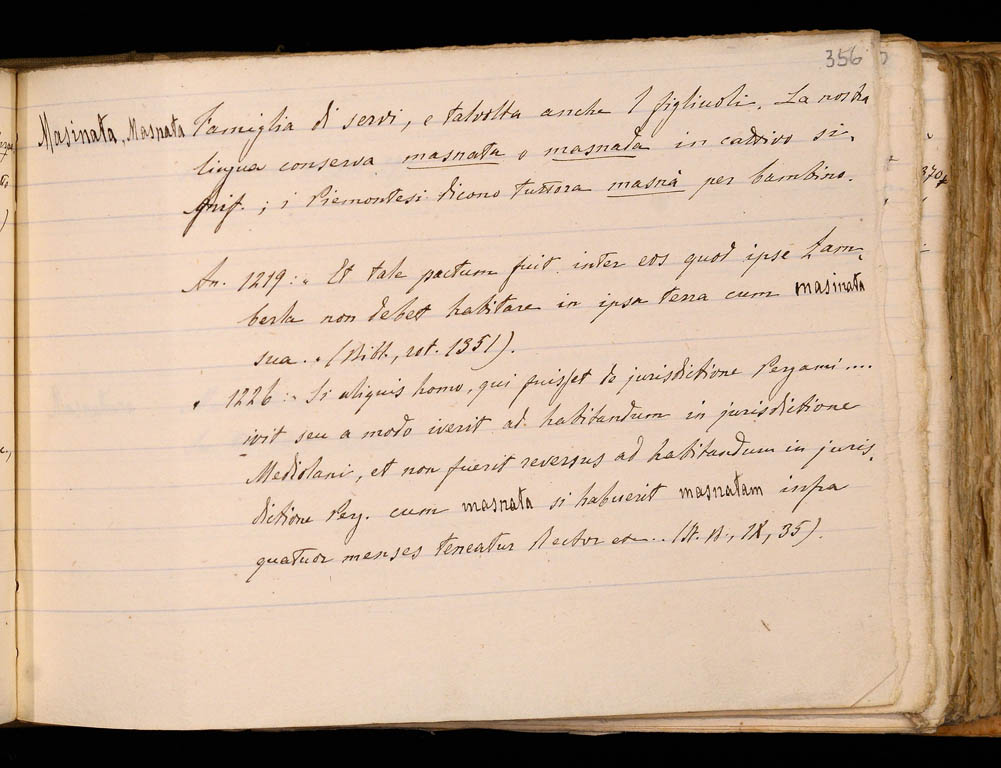 356
Masinata, Masnata Famiglia di servi, e talvolta anche I figliuoli. La nostra
lingua conserva masnata o masnada in cattivo si-
gnif.; i Piemontesi dicono tuttora masnà per bambino.
An. 1219: " Et tale pactum fuit inter eos quod ipse Lam-
berta non debet habitare in ipsa terra cum masinata
sua. " (Bibl., rot. 1351).
" 1226: " Si aliquis homo, qui fuisset de jurisdictione Pergami....
ivit seu a modo iverit ad habitandum in jurisdictione
Mediolani, et non fuerit reversus ad habitandum in juris-
dictione Perg. cum masnata si habuerit masnatam infra
quatuor menses teneatur Rector ec.. (St. A., IX, 35).
370